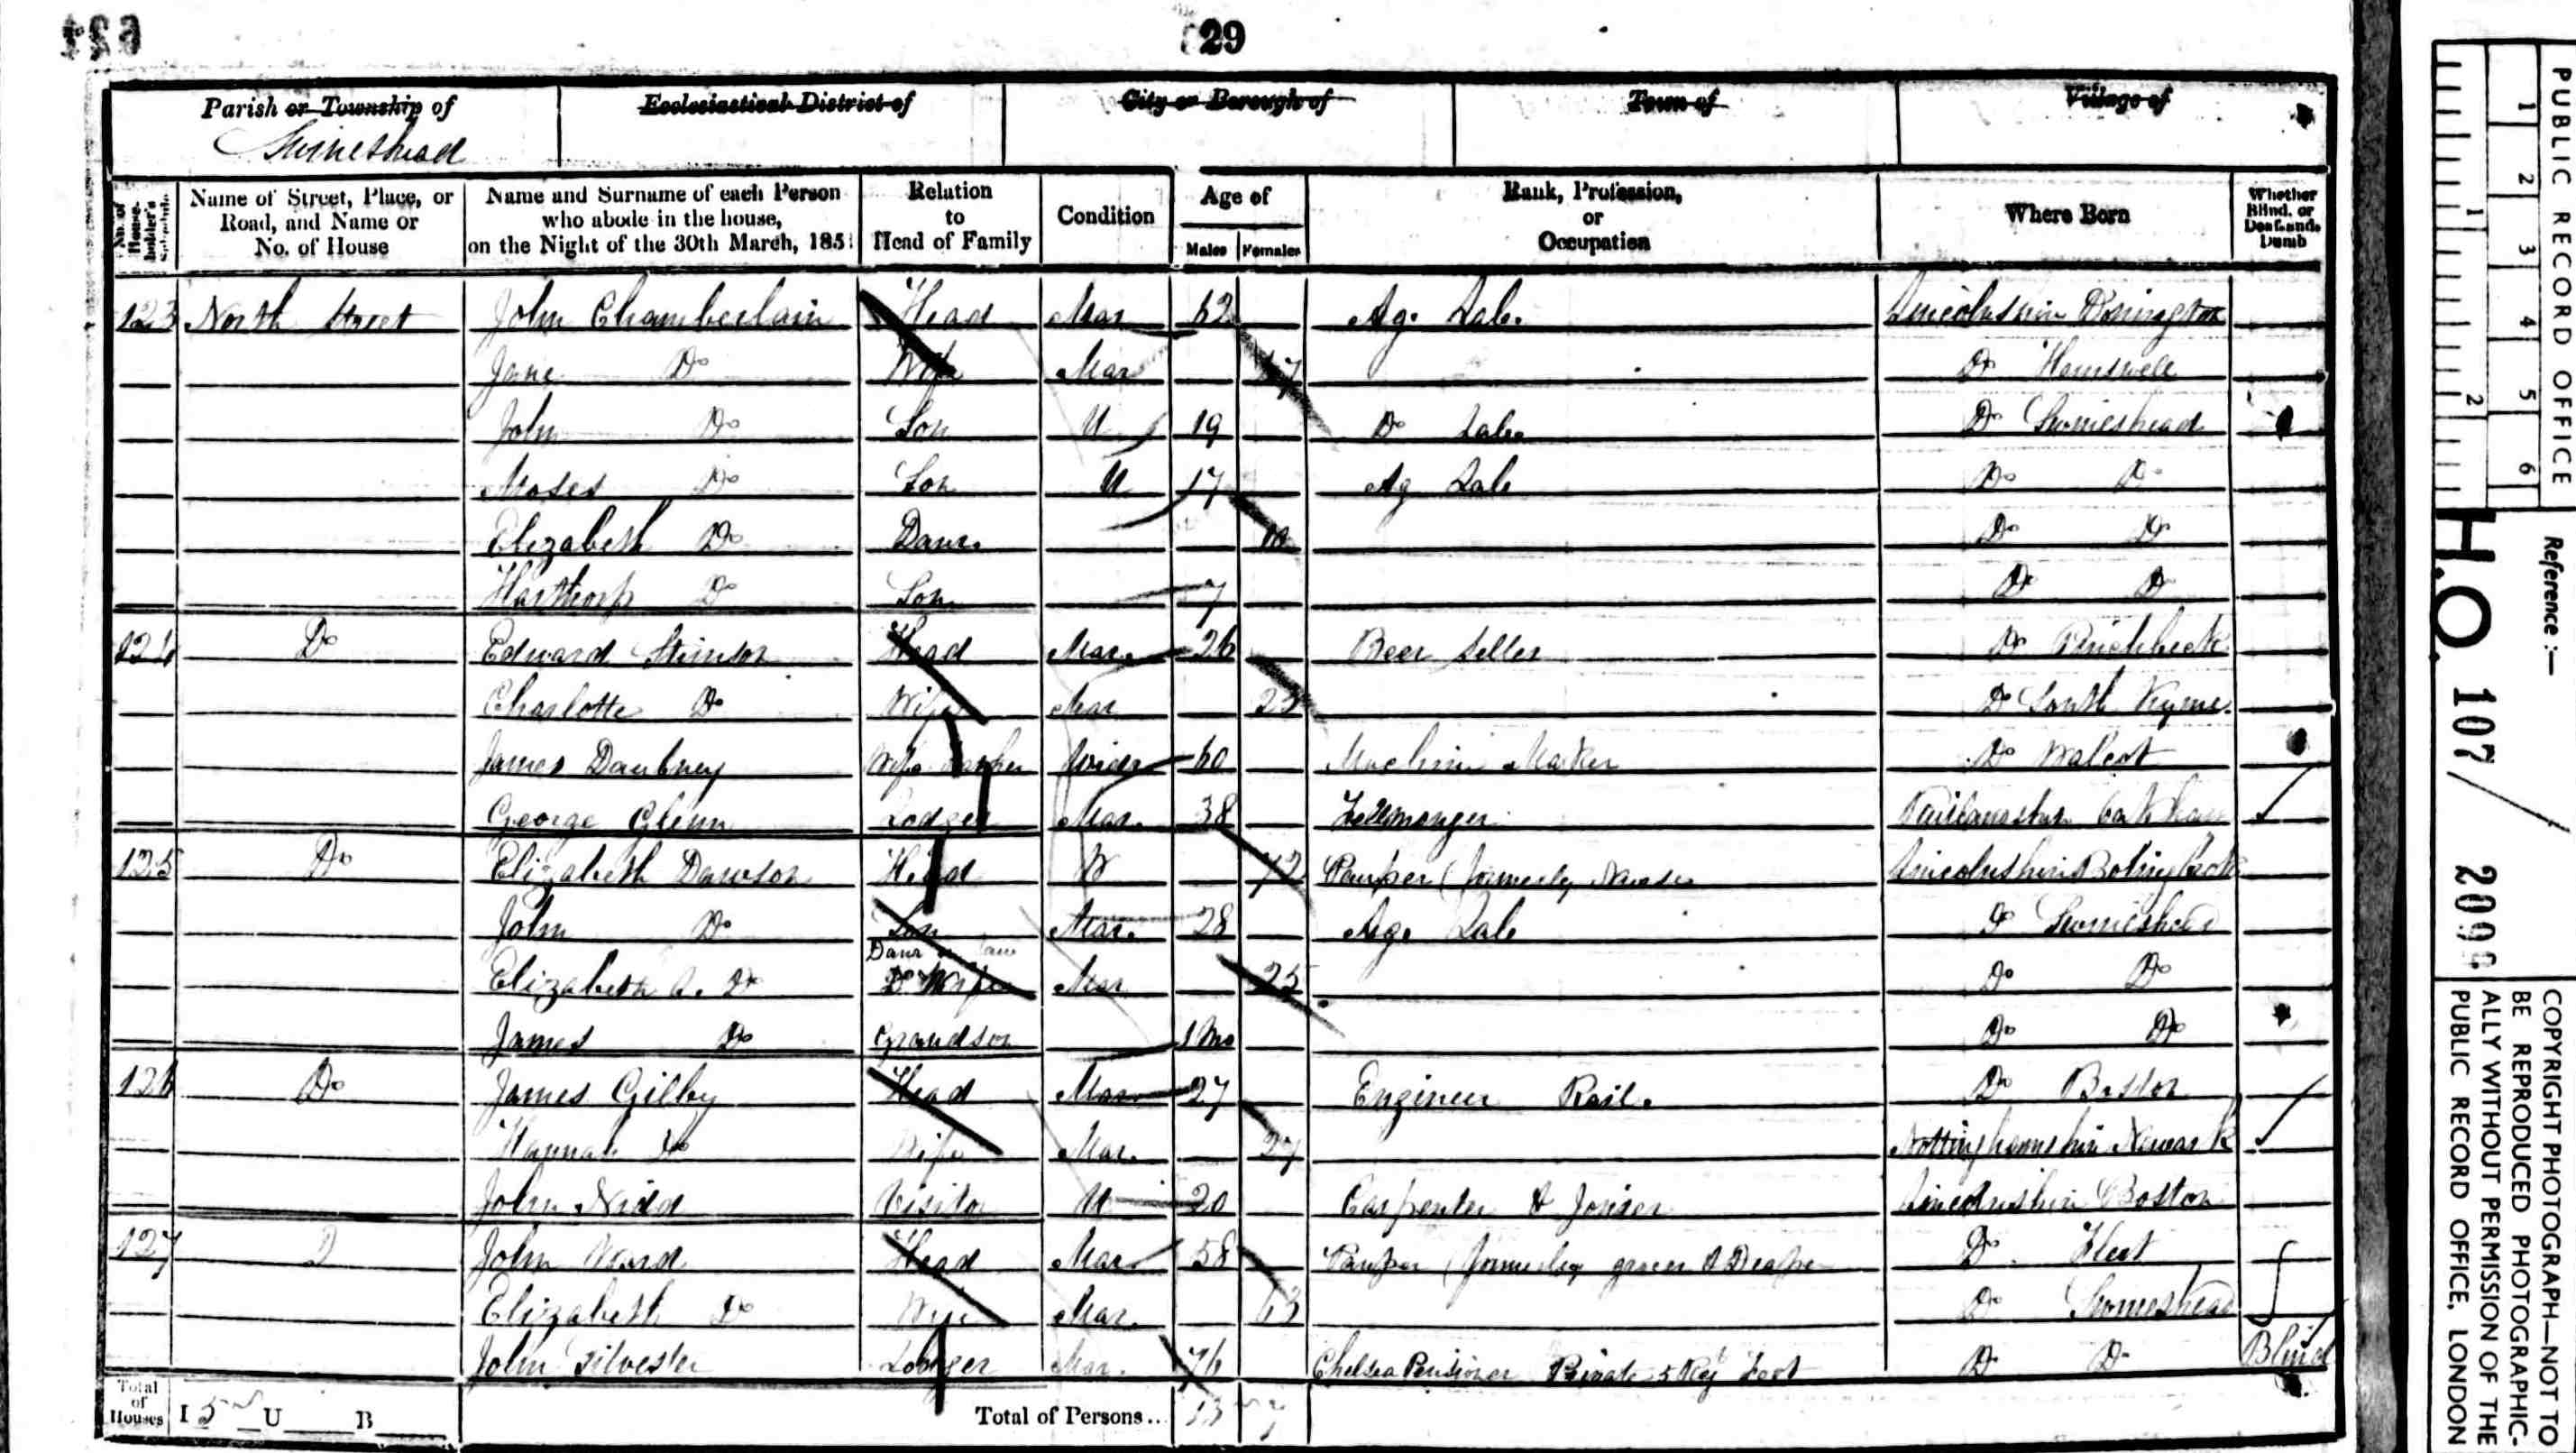 29
Parish or Township of
Swineshead
Ecclesiastical District of
City or Borough of
Town of
Village of
No. of Householder's Schedule
Name of Street, Place, or Road, and Name or No. of House
Name and Surname of each Person who abode in the house, on the Night of the 30th March, 1851
Relation to Head of Family
Condition
Age of
Males Females
Rank, Profession, or Occupation
Where Born
Whether Blind, or Deaf-and-Dumb
123 North Street John Chamberlain Head Mar 62 Ag. Lab. Lincolnshire Donington
Jane Do Wife Mar 47 Do Hemswell
John Do Son U 19 Do Lab. Do Swineshead
Moses Do Son U 17 Ag Lab Do Do
Elizabeth Do Daur. 10 Do Do
Do Son 7 Do Do
124 Do Edward Stimson Head Mar. 26 Beer Seller Do Pinchbeck
Charlotte Do Wife Mar Do South Kyme.
James Daubney Wife Father Widr 60 Machine Maker Do Walcot
George Glenn Lodger Mar. 38 Fellmonger
125 Do Elizabeth Dawson Head W 72 Pauper (formerly Nurse Lincolnshire Bolingbrok
John Do Son Mar. 28 Ag. Lab Do Swineshead
Daur in law
Elizabeth A. Do Do Wife Mar 25 Do Do
James Do Grandson 1 Mo Do Do
126 Do James Gilby Head Mar 27 Engineer Rail. Do Boston
Hannah Do Wife Mar. 27 Nottinghamshire Newark
John Nidd Visitor U 20 Carpenter & Joiner Lincolnshire Boston
127 D John Ward Head Mar 58 Pauper (formerly grocer & Draper Do Fleet
Elizabeth Do Wife Mar. 63 Do Swineshead
John Silvester Lodger Mar. 76 Chelsea Pensioner Private 5 Reg Foot Do Do Blind
Total of Houses I 5 U B Total of Persons.. 13 7
PUBLIC RECORD OFFICE
1 2 3 4 5 6
1 2
Reference :-
H.O. 107/
COPYRIGHT PHOTOGRAPH—NOT TO
BE REPRODUCED PHOTOGRAPHIC-
ALLY WITHOUT PERMISSION OF THE
PUBLIC RECORD OFFICE, LONDON